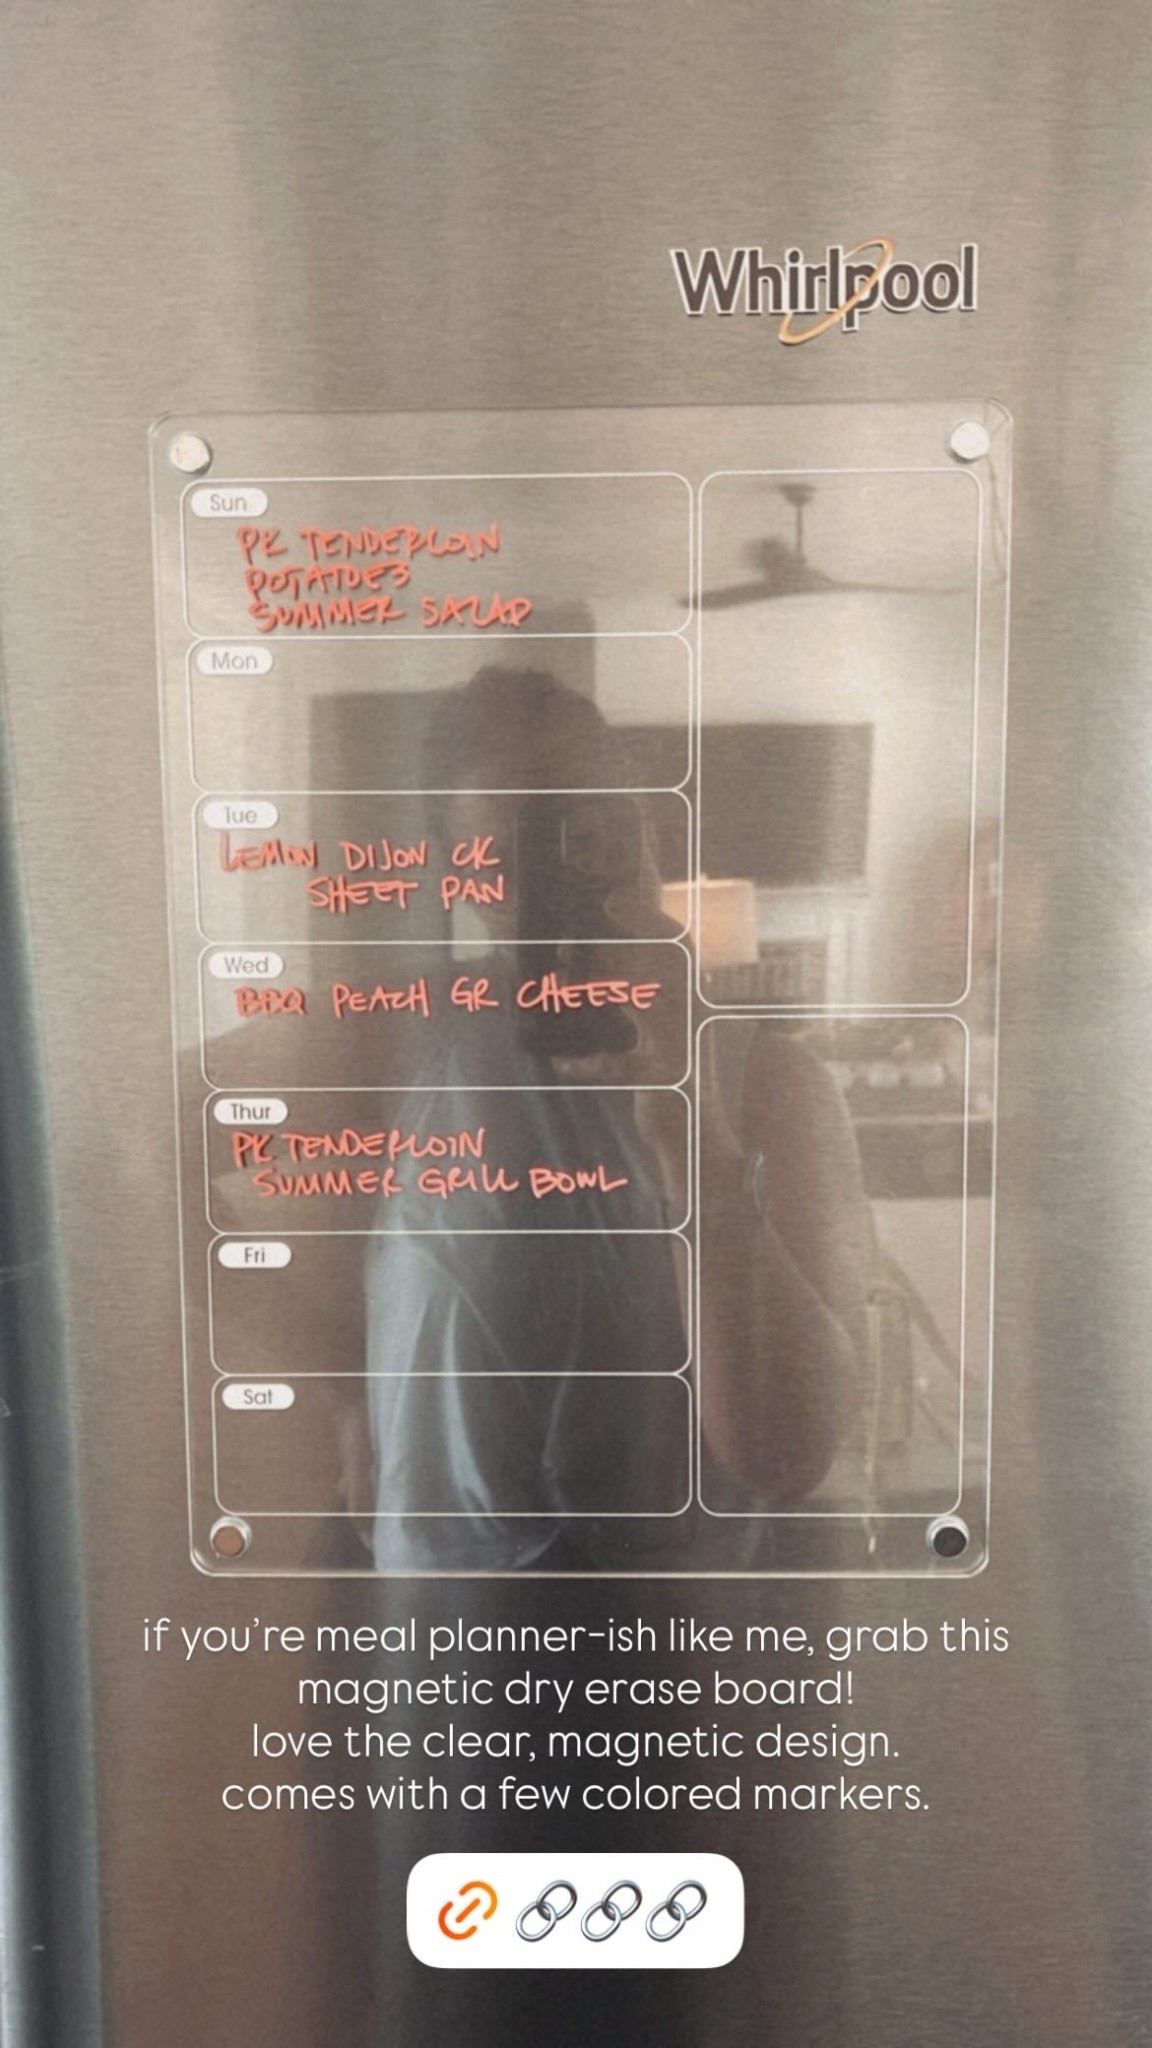 Whirlpool
Sun
PK TENDERLOIN
POTATOES
SUMMER SALAD
Mon
Tue
LEMON DIJON CK
SHEET PAN
Wed
BBQ PEACH GR CHEESE
Thur
PK TENDERLOIN
SUMMER GRILL BOWL
Fri
Sat
if you're meal planner-ish like me, grab this
magnetic dry erase board!
love the clear, magnetic design.
comes with a few colored markers.